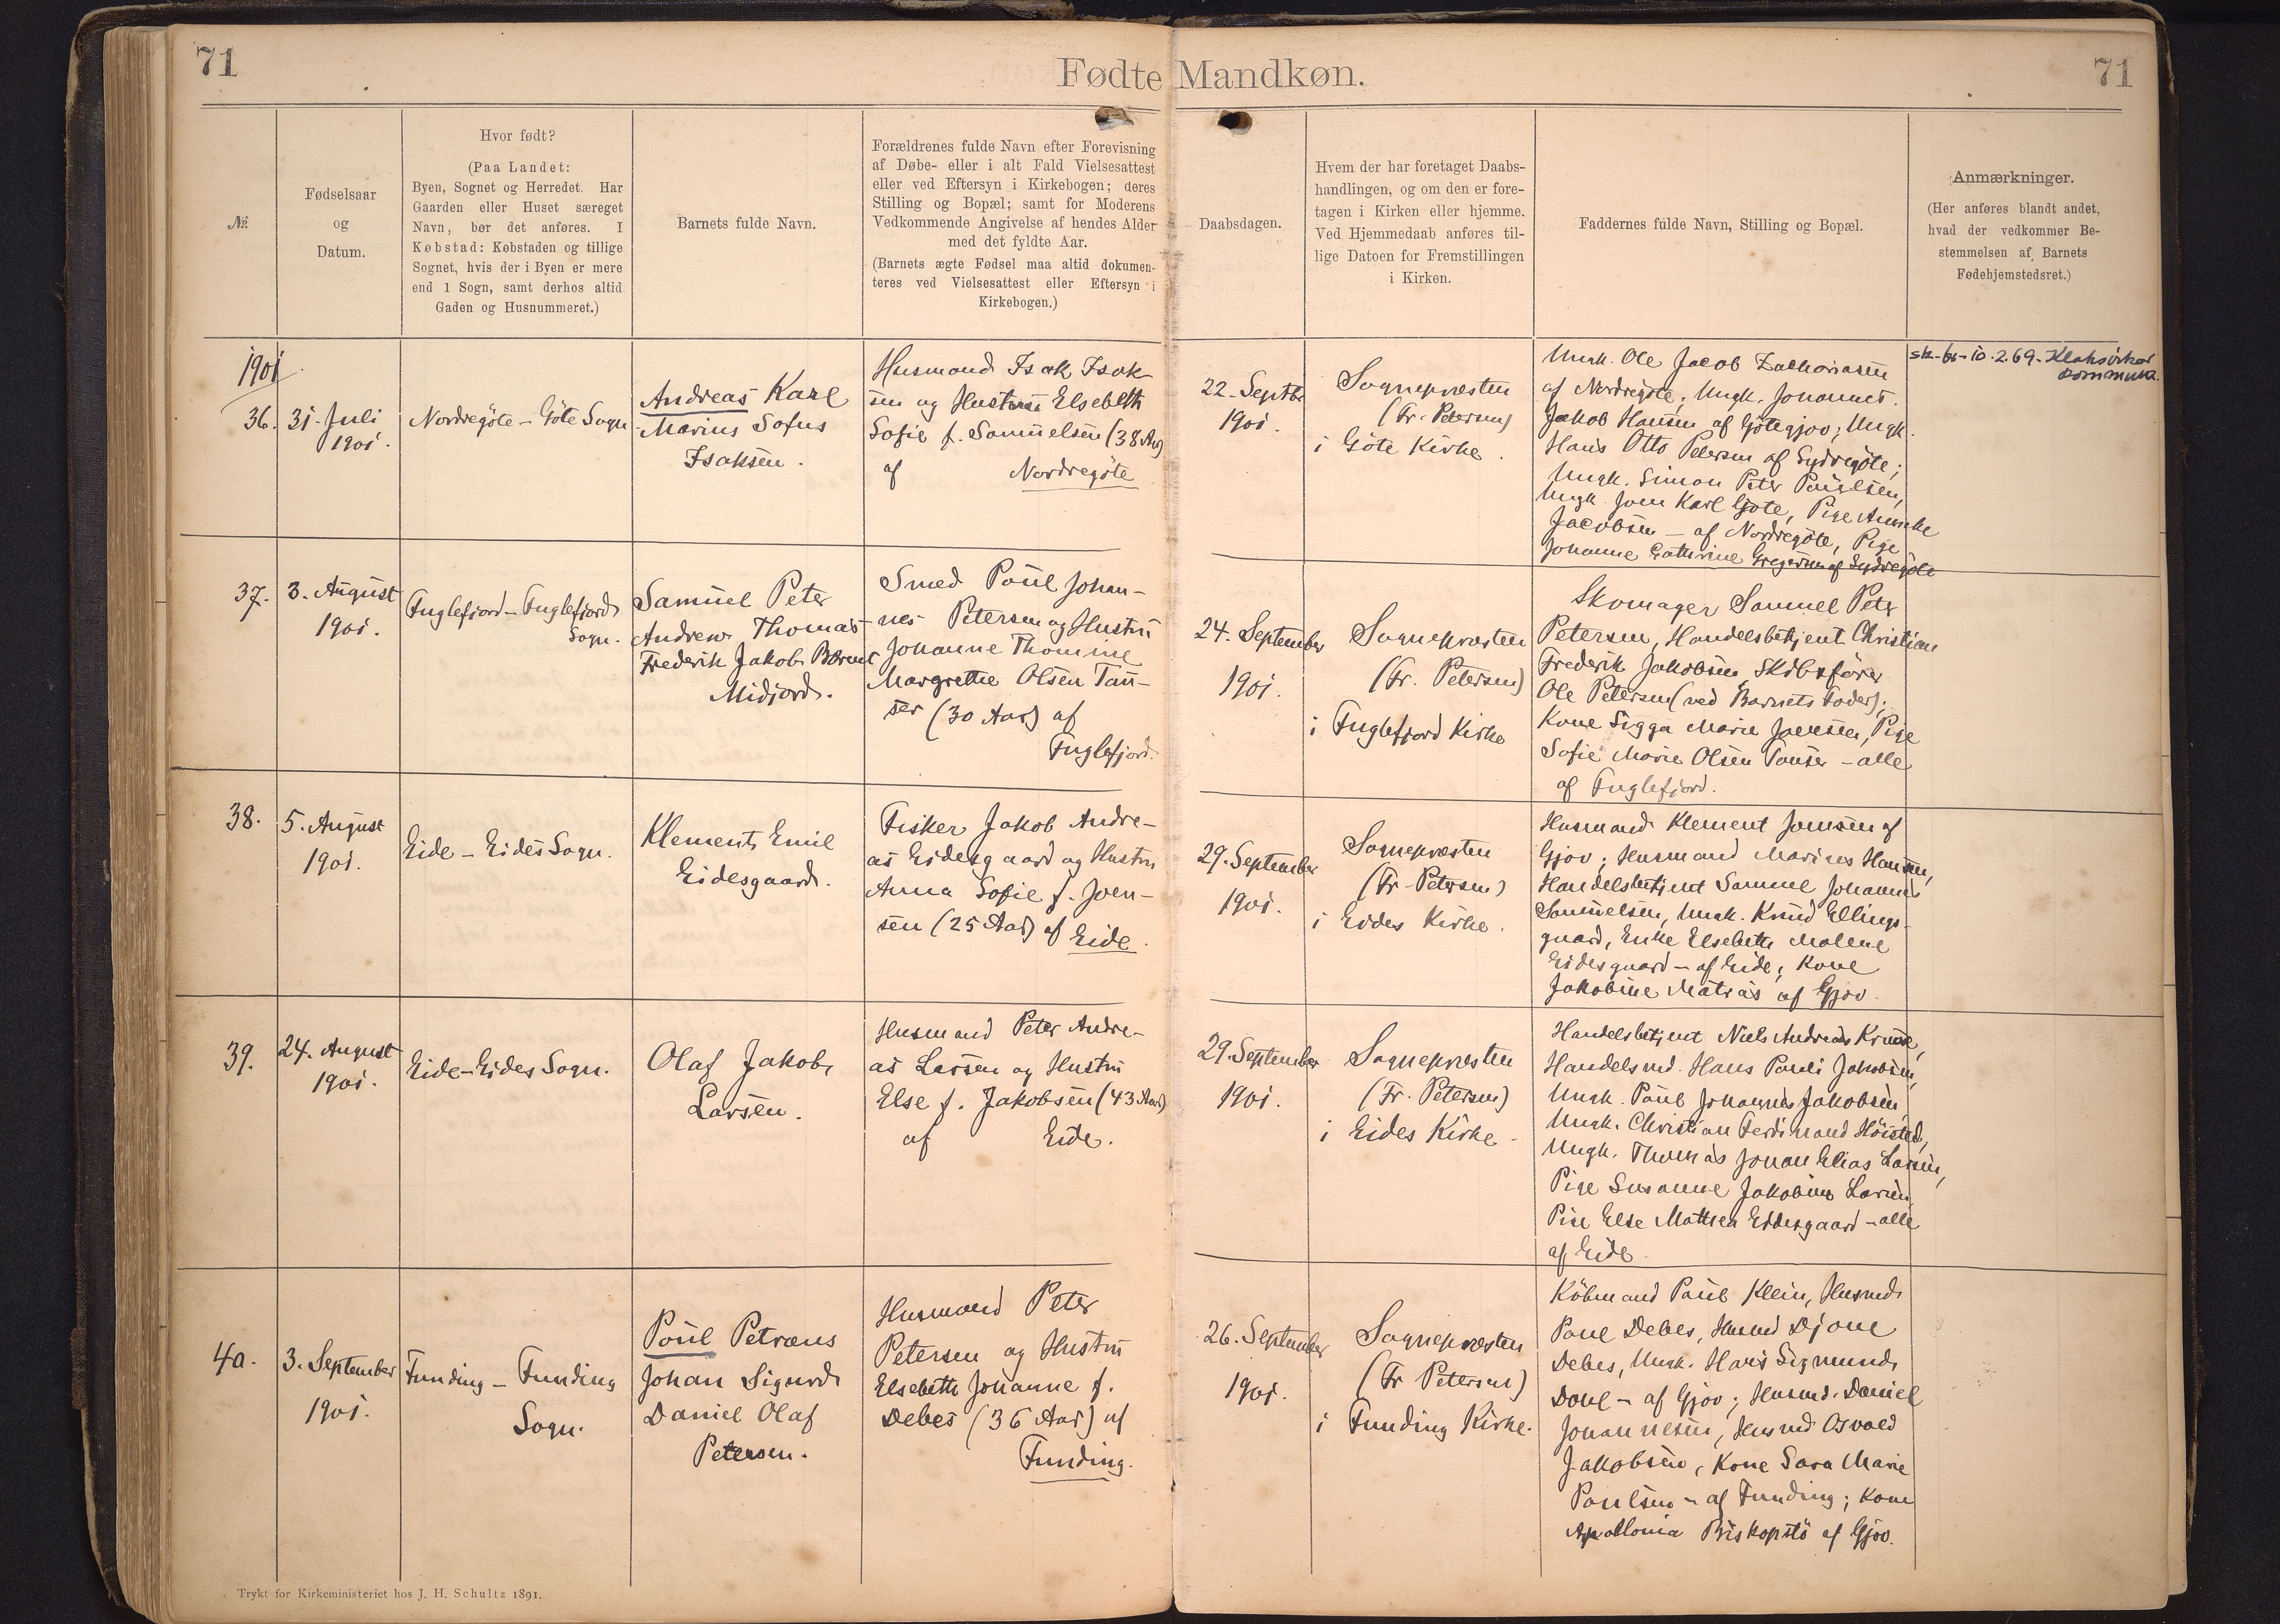 71
Fødte Mandkøn.
71
№
Fødselsaar
og
Datum.
Hvor født?
(Paa Landet:
Byen, Sognet og Herredet. Har
Gaarden eller Huset særeget
Navn, bør det anføres. I
Købstad: Købstaden og tillige
Sognet, hvis der i Byen er mere
end 1 Sogn, samt derhos altid
Gaden og Husnummeret.)
Barnets fulde Navn.
Forældrenes fulde Navn efter Forevisning
af Døbe- eller i alt Fald Vielsesattest
eller ved Eftersyn i Kirkebogen; deres
Stilling og Bopæl; samt for Moderens
Vedkommende Angivelse af hendes Alder
med det fyldte Aar.
(Barnets ægte Fødsel maa altid dokumen-
teres ved Vielsesattest eller Eftersyn i
Kirkebogen.)
Daabsdagen.
Hvem der har foretaget Daabs-
handlingen, og om den er fore-
tagen i Kirken eller hjemme.
Ved Hjemmedaab anføres til-
lige Datoen for Fremstillingen
i Kirken.
Faddernes fulde Navn, Stilling og Bopæl.
Anmærkninger.
(Her anføres blandt andet,
hvad der vedkommer Be-
stemmelsen af Barnets
Fødehjemstedsret.)
1901
36.
31. Juli
1901.
Nordregöte - Göte Sogn
Andreas Karl
Marius Sofus
Isaksen.
Husmand Isak Isak-
sen og Hustru Elsebeth
Sofie f. Samuelsen (38 Aar)
af Nordregöte
22. Septbr
1901.
Sognepræsten
(Fr. Petersen)
i Göte Kirke.
Ungk. Ole Jacob Zachariasen
af Nordregöte, Ungk. Johannes
Jakob Hansen af Götegjov; Ungk.
Hans Otto Petersen af Sydregöte;
Ungk. Simon Peter Poulsen,
Ungk. Joen Karl Göte, Pige
Jacobsen - af Nordregöte, Pige
Johanne Cathrine Gregersen af Sydregöte
10.2.69. Klaksvikar
kommuna.
37.
3. August
1901.
Fuglefjord - Fuglefjord
Sogn.
Samuel Peter
Andrew Thomas
Frederik Jakob
Midjord.
Smed Poul Johan-
nes Petersen og Hustru
Johanne Thomine
Margrethe Olsen Tau-
ser (30 Aar) af
Fuglefjord.
24. September
1901.
Sognepræsten
(Fr. Petersen)
i Fuglefjord Kirke
Skomager Samuel Peter
Petersen, Handelsbetjent Christian
Frederik Jakobsen, Skibsfører
Ole Petersen (ved Barnets Fader);
Kone Sigga Marie Joensen, Pige
Sofie Marie Olsen Tauser - alle
af Fuglefjord.
38.
5. August
1901.
Eide - Eides Sogn.
Klement Emil
Eidesgaard.
Fisker Jakob Andre-
as Eidesgaard og Hustru
Anna Sofie f. Joen-
sen (25 Aar) af Eide.
29. September
1901.
Sognepræsten
(Fr. Petersen)
i Eides Kirke.
Husmand Klement Joensen af
Gjov; Husmand Marius Hansen,
Handelsbetjent Samuel Johannes
Samuelsen, Ungk. Knud Ellings-
gaard, Enke Elsebeth Malene
Eidesgaard - af Eide; Kone
Jakobine Matras af Gjov.
39.
24. August
1901.
Eide - Eides Sogn.
Olaf Jakob
Larsen.
Husmand Peter Andre-
as Larsen og Hustru
Else f. Jakobsen (43 Aar)
af Eide.
29. September
1901.
Sognepræsten
(Fr. Petersen)
i Eides Kirke.
Handelsbetjent Niels Andreas Kruse,
Handelsmd. Hans Pauli Jakobsen,
Ungk. Poul Johannes Jakobsen,
Ungk. Christian Ferdinand Höisted,
Ungk. Thomas Johan Elias Larsen,
Pige Susanne Jakobine Larsen,
Pige Else Mathea Eidesgaard - alle
af Eide.
40.
3. September
1901.
Funding - Funding
Sogn.
Poul Petræus
Johan Sigurd
Daniel Olaf
Petersen.
Husmand Peter
Petersen og Hustru
Elsebeth Johanne f.
Debes (36 Aar) af
Funding.
26. September
1901.
Sognepræsten
(Fr Petersen)
i Funding Kirke.
Köbmand Poul Klein, Husmd.
Poul Debes, Husmd Djone
Debes, Ungk. Hans Sigmund
Doul - af Gjov; Husmd. Daniel
Johannesen, Husmd Osvald
Jakobsen, Kone Sara Marie
Poulsen - af Funding; Kone
Apollonia Biskopstö af Gjov.
Trykt for Kirkeministeriet hos J. H. Schultz 1891.